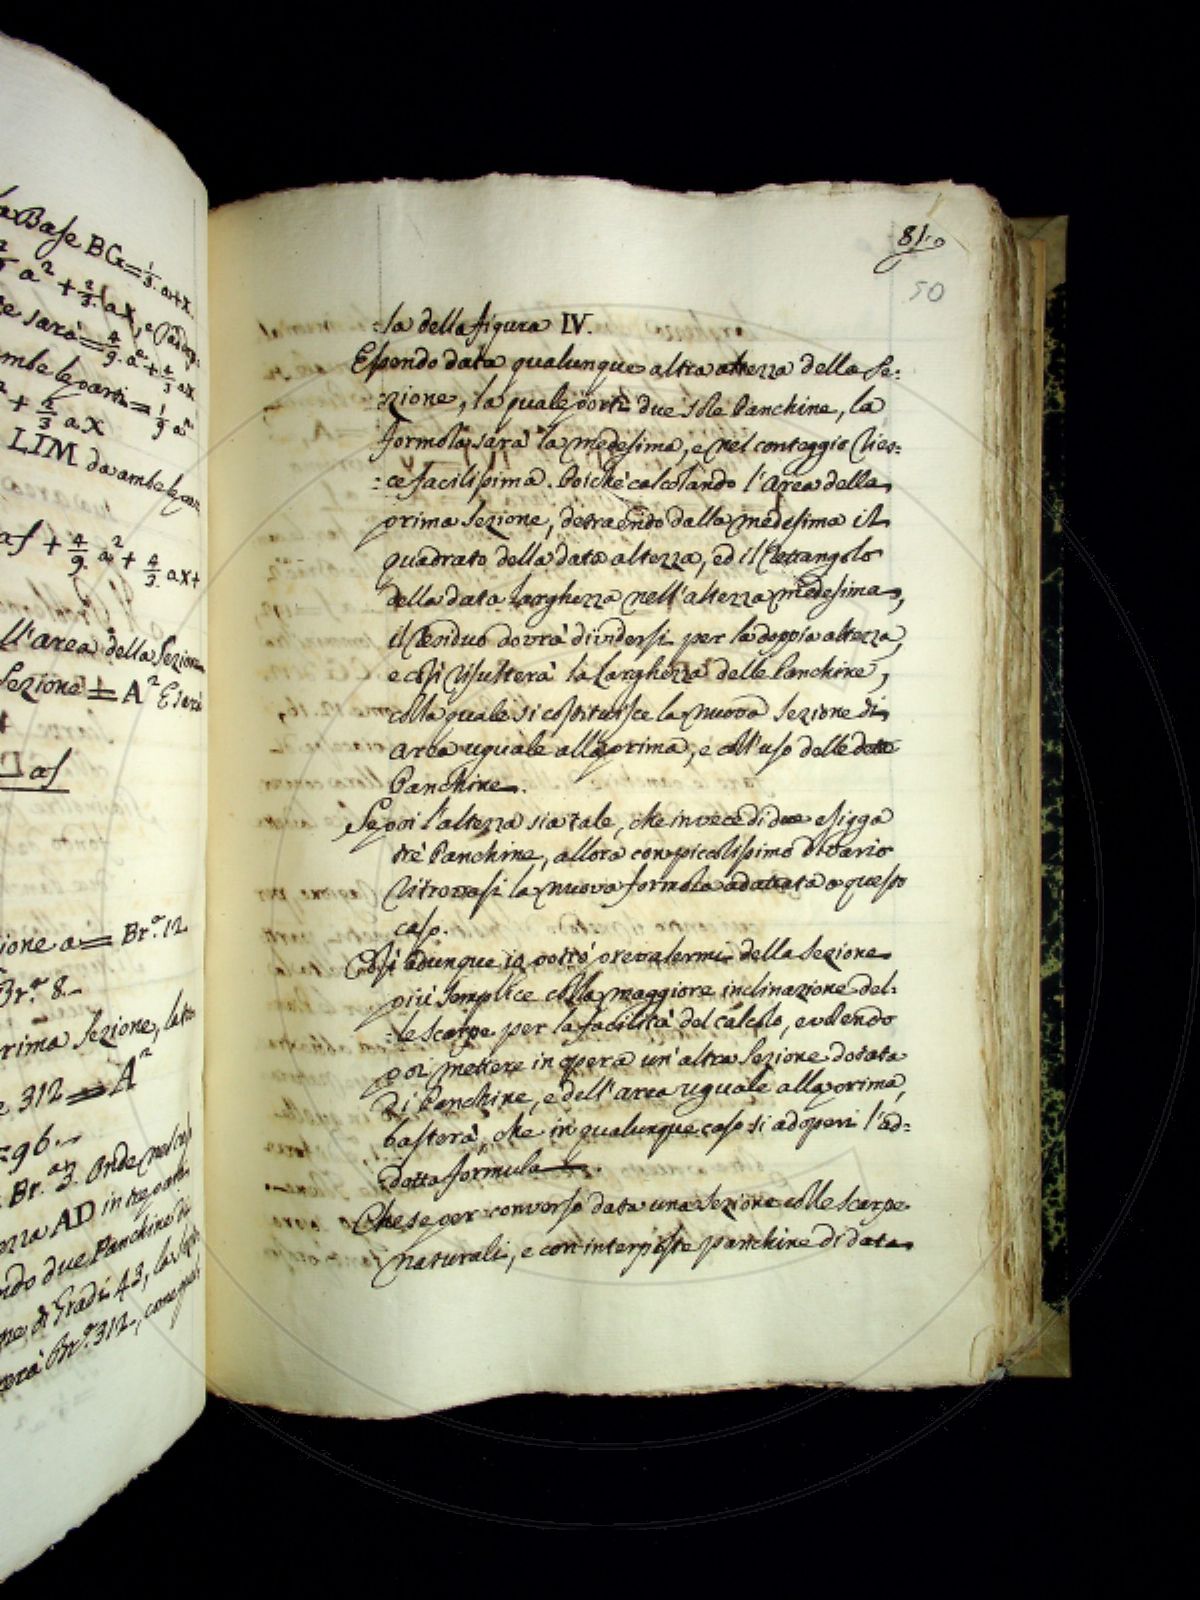 la Base BG = 1/3 a + x.
2/9 a² + 2/3 ax, e
re sarà = 4/9 a² + 4/3 ax
ambe le parti = 1/9 a²
+ 2/3 ax
LIM da ambe le
as + 4/9 a² + 4/3 ax +
ll'area della Sezione
Sezione = A² E sarà
as
ione a = Br.ª 12
Br.ª 8.
prima Sezione,
e 312 = A²
= 96.
Br.ª 3. Onde nel
ezza AD in tre parti
ndo due Panchine di
ne di Gradi 43, la
verà Br.ª 312,
81.
50
:la della figura IV.
Essendo data qualunque altra altezza della Se:
:zione, la quale porti due sole Panchine, la
formola sarà la medesima, e nel conteggio ries:
:ce facilissima. Poichè calcolando l'Area della
prima Sezione, detraendo dalla medesima il
quadrato della data altezza, ed il Rettangolo
della data larghezza nell'altezza medesima,
il Residuo dovrà dividersi per la doppia altezza,
e così risulterà la Larghezza delle Panchine,
colla quale si costituisce la nuova Sezione di
area uguale alla prima, e coll'uso delle dette
Panchine.
Se poi l'altezza sia tale, che in vece di due esigga
trè Panchine, allora con piccolissimo divario
ritrovasi la nuova formola adattata a questo
caso.
Così adunque io potrò prevalermi della Sezione
più semplice colla maggiore inclinazione del:
:le scarpe per la facilità del calcolo, e volendo
poi mettere in opera un'altra Sezione dotata
di Panchine, e dell'area uguale alla prima,
basterà, che in qualunque caso si adoperi l'ad:
dotta formula.
Che se per converso data una Sezione colle scarpe
naturali, e con interposte panchine di data